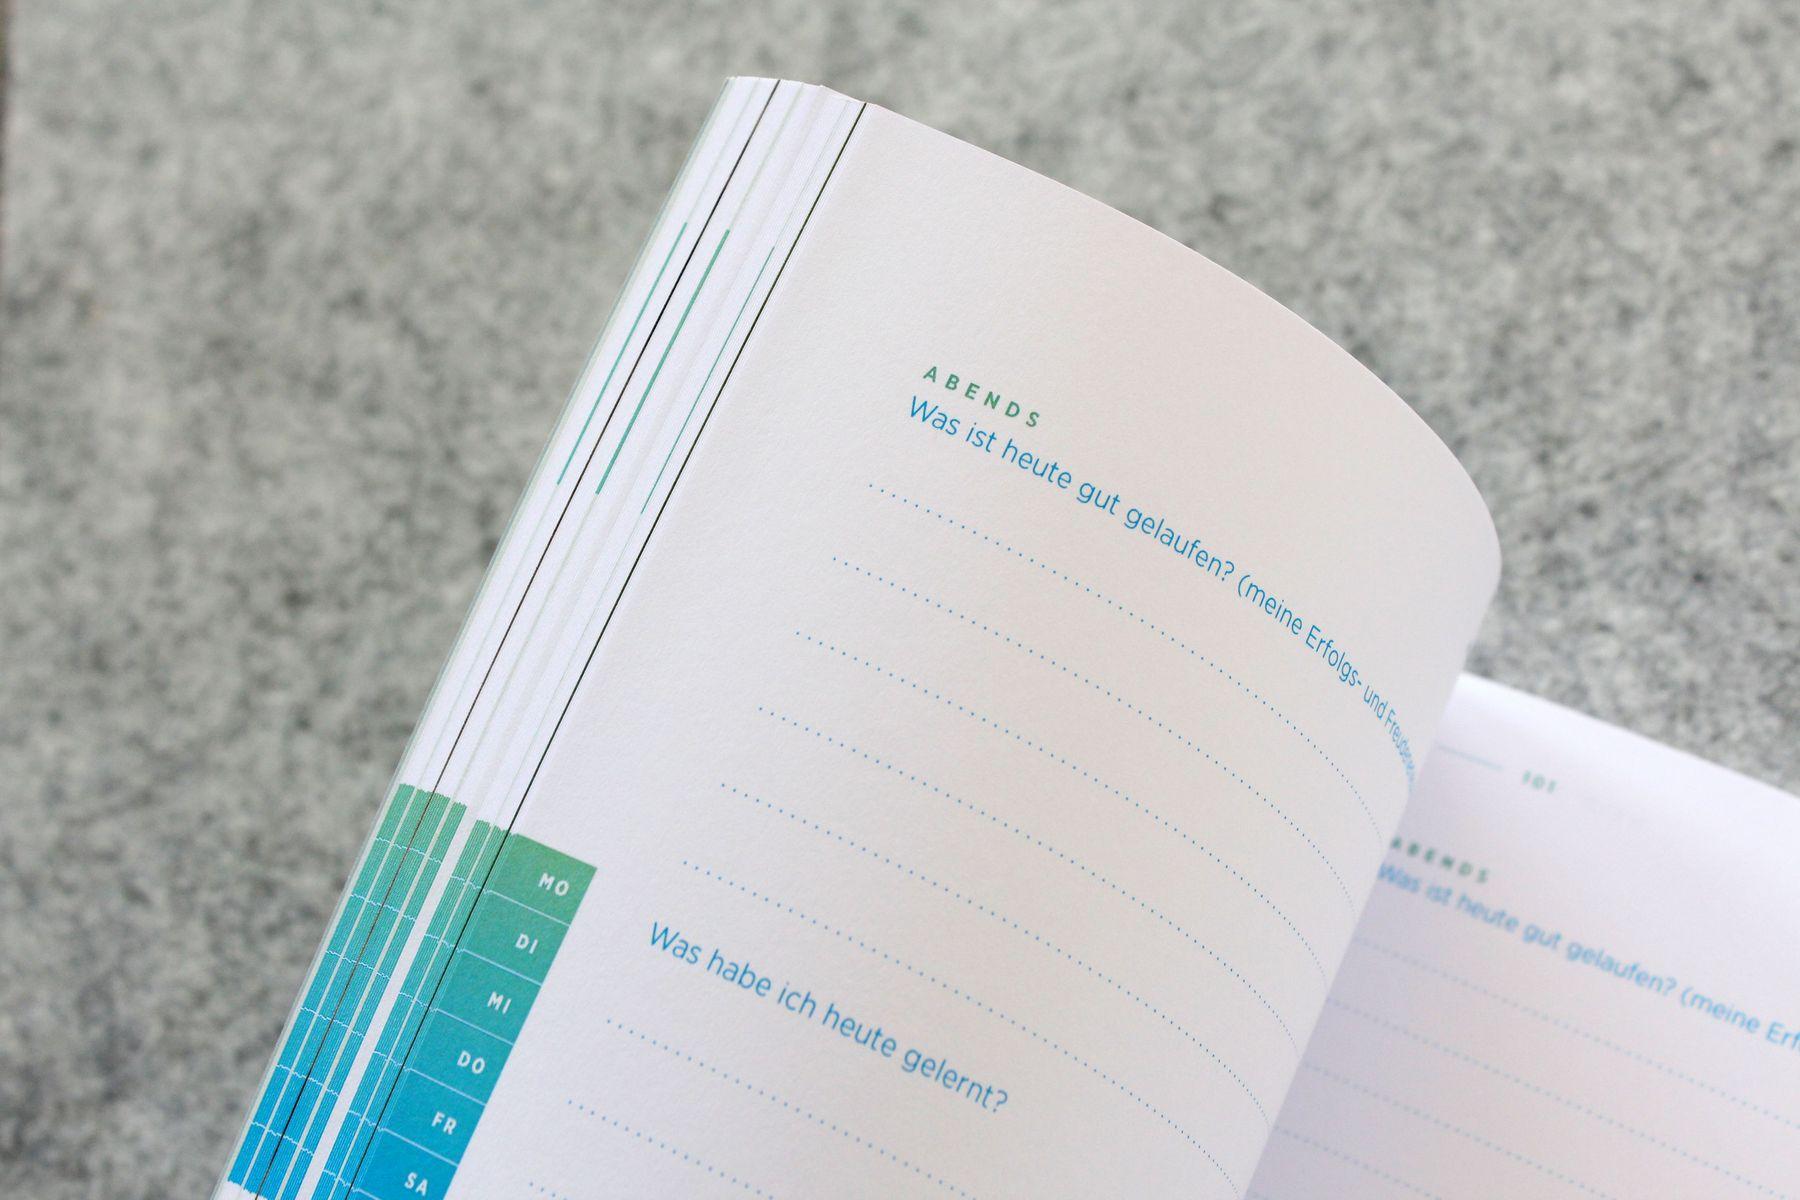 ABENDS
Was ist heute gut gelaufen? (meine Erfolgs- und
Was habe ich heute gelernt?
MO
DI
MI
DO
FR
SA
101
ABENDS
Was ist heute gut gelaufen? (meine